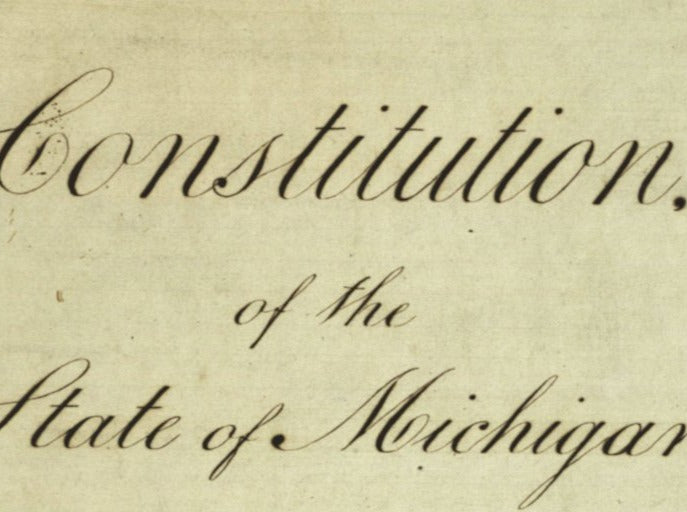 Constitution.
of the
State of Michigan